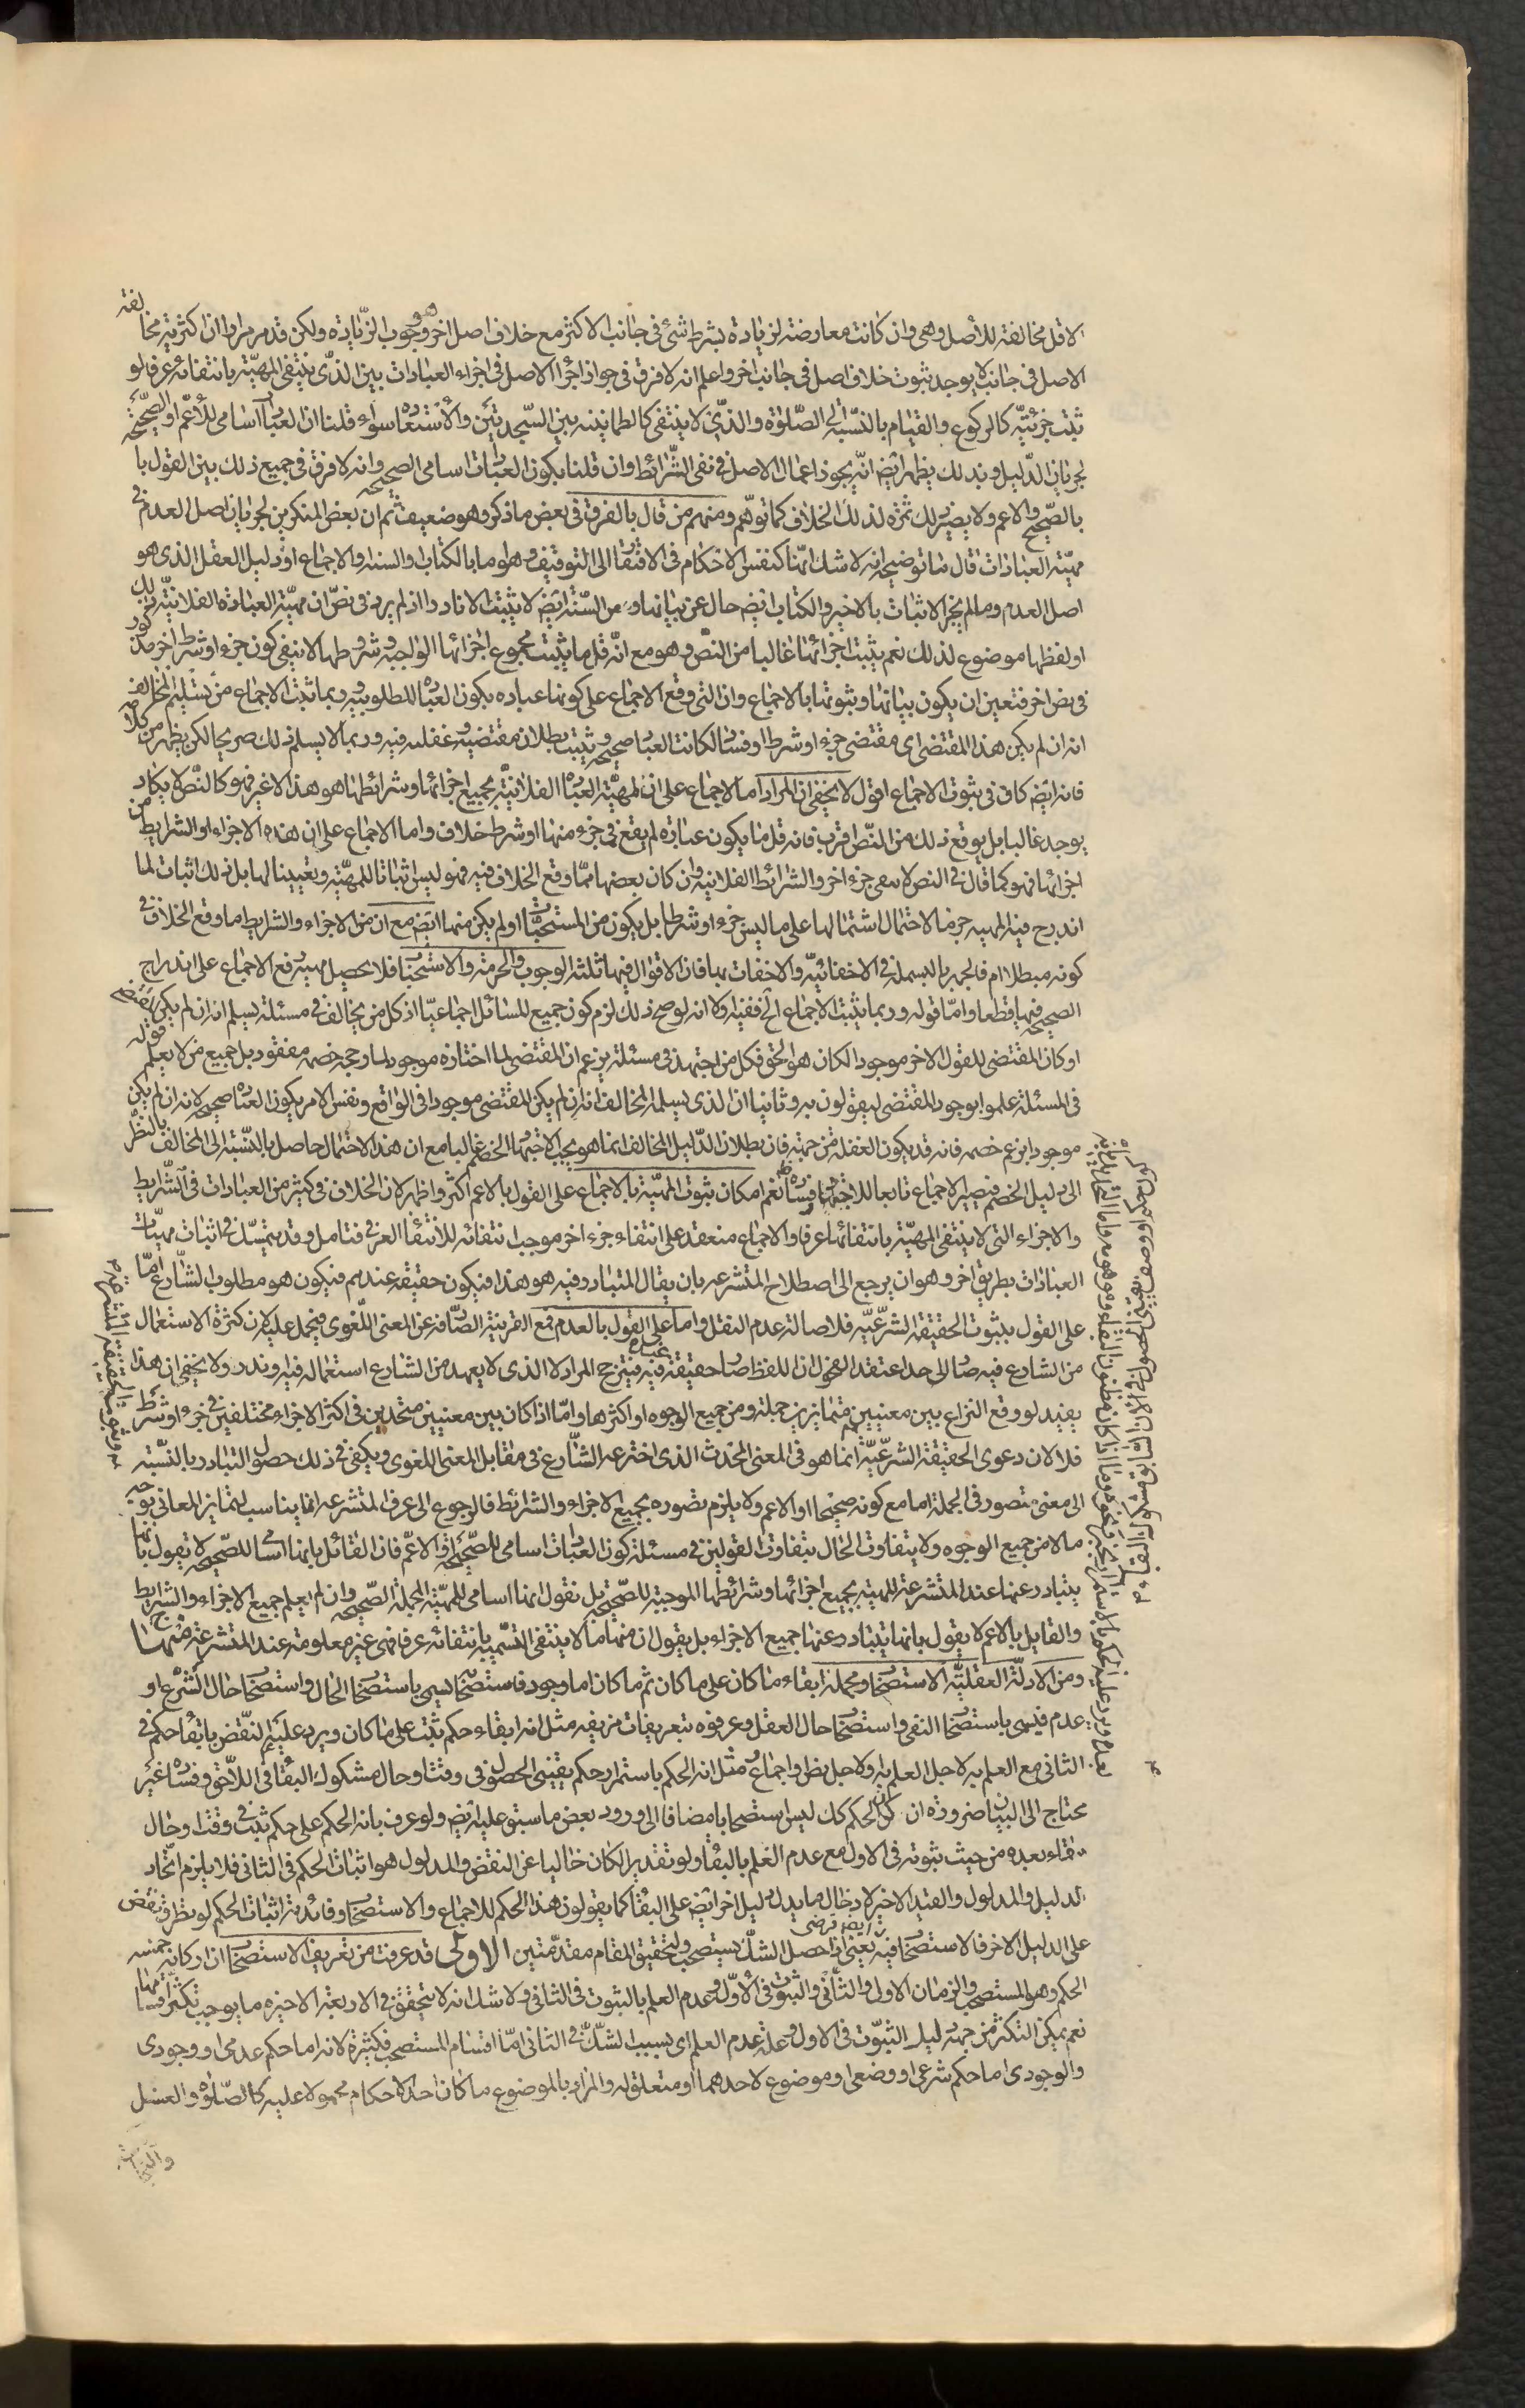 الاقل مخالفته للأصل وهى وان كانت معارضته لزيادة بشرط شئ فى جانب الاكثر مع خلاف اصل اخر وهو وجوب الزيادة ولكن قد مر مرارا ان اكثرية مخالفته
الاصل فى جانب لا يوجد ثبوت خلاف اصل فى جانب اخر واعلم انه لا فرق فى جواز اجراء الاصل فى اجزاء العبادات بين الذى ينتفى المهيّة بانتفائه عرفا لو
ثبت جزئيّته كالركوع والقيام بالنسبة الى الصّلوة والذى لا ينتفى كالطمانينة بين السّجدتين والاستعاذة سواء قلنا ان العبادات اسامى للأعمّ او الصّحيحة
لجريان الدّليل وبذلك يظهر ايضا انّه يجوز اعمال الاصل فى نفى الشّرائط وان قلنا بكون العبادات اسامى الصحيحة وانه لا فرق فى جميع ذلك بين القول با
بالصّحيح والاعم ولا يصير ذلك ثمرة لذلك الخلاف كما توهّم ومنهم من قال بالفرق فى بعض ما ذكر وهو ضعيف ثم ان بعض المنكرين لجريان اصل العدم فى
مهيّة العبادات قال ما توضيحه انه لا شك انها كنفس الاحكام فى الافتقار الى التوقيف وهو اما بالكتاب والسنة والاجماع او دليل العقل الذى هو
اصل العدم وما لم يجز الاثبات بالاخير والكتاب ايضا خال عن بيانها و من السّنّة ايضا لا يثبت الا نادرا اذ لم يرد فى نصّ ان مهيّة العبادة الفلانيّة كذلك
او لفظها موضوع لذلك نعم يثبت اجزائها غالبا من النصّ وهو مع انّه قل ما يثبت مجموع اجزائها الواجبة وشروطها لا ينفى كون جزء او شرط اخر مذكور
فى نص اخر فتعين ان يكون بيانها وثبوتها بالاجماع وان التى وقع الاجماع على كونها عبادة يكون العبادة المطلوبة وربما ثبت الاجماع من تسليم المخالف
انه ان لم يكن هذا المقتضى اى مقتضى جزء او شرط او فساد لكانت العبادة صحيحة ويثبت بطلان مقتضيه وغفلته فيه وربما لا يسلم ذلك صريحا لكن يظهر من كلامه
فانه ايضا كاف فى ثبوت الاجماع اقول لا يخفى ان المراد اما الاجماع على ان المهيّة العبادة الفلانيّة بجميع اجزائها وشرائطها هو هذا لا غير فهو كالنّص لا يكاد
يوجد غالبا بل يوقع ذلك من النّص اقرب فانه قل ما يكون عبادة لم يقع فى جزء منها او شرط خلاف واما الاجماع على ان هذه الاجزاء او الشرايط من
اجزائها فهو كما قال فى النص لا ينفى جزء اخر والشرائط الفلانية وان كان بعضها ممّا وقع الخلاف فيه فهو ليس اثباتا للمهيّة وتعيينا لها بل ذلك اثبات لما
اندرج فيه المهيه جزما لاحتمال اشتمالها على ما ليس جزء او شرطا بل يكون من المستحبّات او لم يكن منها ايضا مع ان من الاجزاء والشرايط ما وقع الخلاف فى
كونه مبطلا ام فالجهر بالبسملة فى الاخفائيّة والاخفات بها فان الاقوال فيها ثلثة الوجوب والحرمة والاستحباب فلا يحصل مهيّة يقع الاجماع على اندراج
الصحيحة فيها قطعا واما قوله وربما يثبت الاجماع الخ ففيه اولا انه لو صح ذلك لزم كون جميع المسائل اجماعيّا اذ كل من يخالف فى مسئلة يسلم انه ان لم يكن مقتضى قوله
او كان المقتضى للقول الاخر موجودا لكان هو الحق فكل من اجتهد فى مسئلة يزعم ان المقتضى لما اختاره موجود لما وجه خصمه مفقود بل جميع من لا يعلم
فى المسئلة علموا بوجود المقتضى ليقولون به وثانيا ان الذى يسلمه المخالف انه ان لم يكن المقتضى موجودا فى الواقع ونفس الامر يكون العبادة صحيحة لا انه ان لم يكن
موجودا بزعم خصمه فانه قد يكون الغفلة من جهته فان بطلان الدّليل المخالف انما هو بحسب الاجتهاد الخصم غالبا مع ان هذا الاحتمال حاصل بالنّسبة الى المخالف بالنظر
الى دليل الخصم فيصير الاجماع تابعا للاجتهاد وفساده ظاهر نعم امكان ثبوت المهيّة بالاجماع على القول بالاعم اكثر واظهر لان الخلاف فى كثير من العبادات فى الشّرايط
والاجزاء التى لا ينتفى المهيّة بانتفائها عرفا والاجماع منعقد على انتفاء جزء اخر موجب انتفائه للانتفاء العرفى فتامل وقد يتمسّك فى اثبات مهيّات
العبادات بطريق اخر وهو ان يرجع الى اصطلاح المتشرعه بان يقال المتبادر فيه هو هذا فيكون حقيقة عندهم فيكون هو مطلوب الشّارع امّا
على القول بثبوت الحقيقة الشرعيّة فلاصالة عدم النقل واما على القول بالعدم فمع القرينة الصّارفة عن المعنى اللّغوى فيحمل عليه لان كثرة الاستعمال
من الشارع فيه صار الى حد اعتقد الفحول ان اللفظ صار حقيقة فيه عنده فيترجح المراد لا الذى لا يعهد من الشارع استعماله فيه او ندر ولا يخفى ان هذا
يفيد لو وقع النزاع بين معنيين متمايزين جملة ومن جميع الوجوه او اكثرها وامّا اذا كان بين معنيين متحدين فى اكثر الاجزاء مختلفين فى جزء او شرط
فلا لان دعوى الحقيقة الشرعيّة انما هو فى المعنى المحدث الذى اخترعه الشّارع فى مقابل المعنى اللغوى ويكفى فى ذلك حصول التبادر بالنّسبة
الى معنى متصور فى الجملة اما مع كونه صحيحا او الاعم ولا يلزم تصوره بجميع الاجزاء والشرائط فالرجوع الى عرف المتشرعه انما يناسب لتمايز المعانى بوجه
ما لا من جميع الوجوه ولا يتفاوت الحال بتفاوت القولين فى مسئلة كون العبادات اسامى للصّحيحة او الاعمّ فان القائل بانها اسامى للصّحيحة لا يقول بانها
يتبادر عنها عند المتشرعة المهيّة بجميع اجزائها وشرائطها الموجبة للصّحيحة بل نقول انها اسامى للمهيّة المجملة الصّحيحة وان لم يعلم جميع الاجزاء والشرايط
والقايل بالاعم لا يقول بانها يتبادر عنها جميع الاجزاء بل يقول ان منها ما لا ينتفى التسمية بانتفائه عرفا فهى غير معلومة عند المتشرعة منهاج
ومن الادلّة العقليّة الاستصحاب ومجمله ابقاء ما كان على ما كان ثم ما كان اما وجود فاستصحابه يسمى باستصحاب الحال واستصحاب حال الشّرع او
عدم فيسمى باستصحاب النفى واستصحاب حال العقل وعرفوه بتعريفات مزيفه مثل انه ابقاء حكم ثبت على ما كان ويرد عليه النّقض بابقاء حكم فى
الثانى مع العلم به لاجل العلم به او لاجل نص او اجماع ومثل انه الحكم باستمرار حكم يقينى الحصول فى وقت او حال مشكوك البقاء فى اللاحق وفساده غير
محتاج الى البيان ضرورة ان كان الحكم كك ليس استصحابا مضافا الى ورود بعض ما سبق عليه ايضا ولو عرف بانه الحكم على حكم ثبت فى وقت او حال
بقاء بعده من حيث ثبوته فى الاول مع عدم العلم بالبقاء ولو تقديرا لكان خاليا عن النقض والمدلول هو اثبات الحكم فى الثانى فلا يلزم اتّحاد
الدليل والمدلول والقيد الاخير لادخال ما يدل دليل اخر ايضا على البقاء كما يقولون هذا الحكم للاجماع والاستصحاب وفائدته اثبات الحكم لو نظر فى نقض
على الدليل الاخر فالاستصحاب فيه ايضا فرضى يعنى انه لو حصل الشكّ يستصحب ولتحقيق المقام مقدّمتين الاولى قد عرفت من تعريف الاستصحاب ان اركانه خمسة
الحكم وهو المستصحب والزمان الاول والثّانى والثبوت فى الاوّل وعدم العلم بالثبوت فى الثانى ولا شك انه لا يتحقق فى الاربعة الاخيرة ما يوجب تكثر اقسامها
نعم يمكن التكثر من جهة دليل الثبوت فى الاول وعلة عدم العلم اى بسبب الشكّ فى الثانى امّا اقسام المستصحب فكثيرة لانه اما حكم عدمى او وجودى
والوجودى اما حكم شرعى او وضعى او موضوع لاحدهما او متعلق له والمراد بالموضوع ما كان احد الاحكام محمولا عليه كالصّلوة والغسل